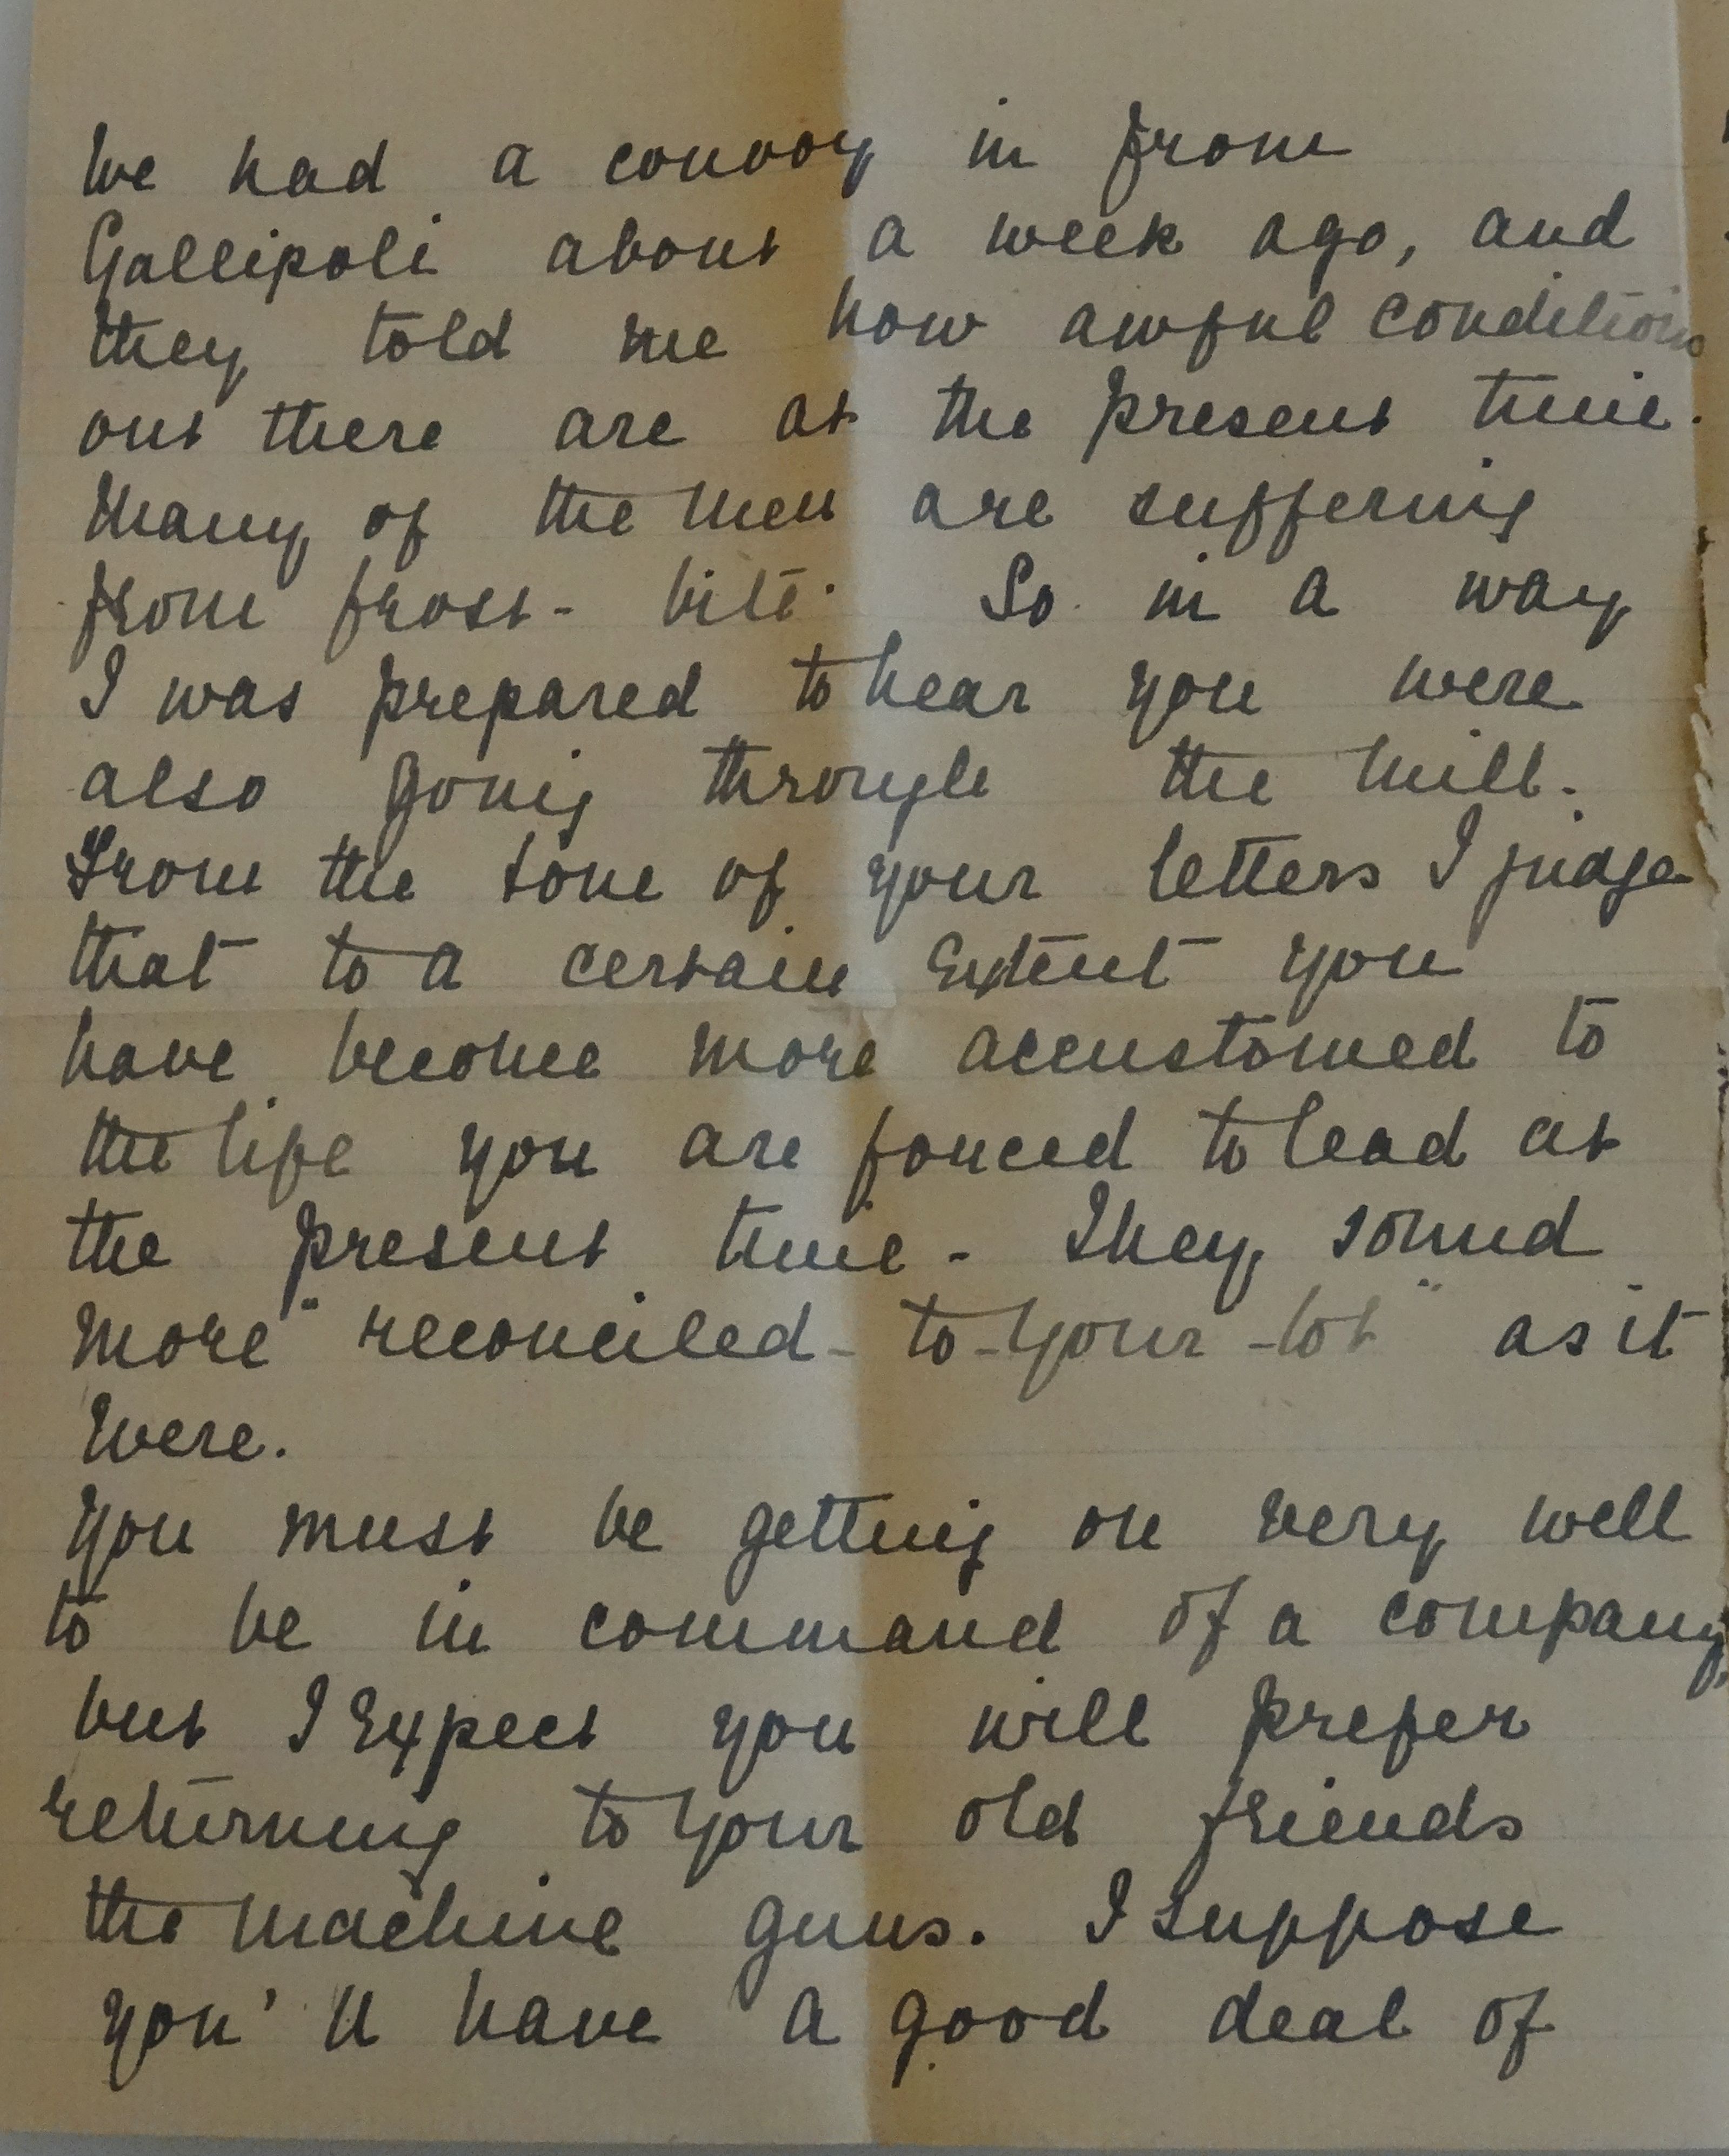 We had a convoy in from
Gallipoli about a week ago, and
they told me how awful conditions
out there are at the present time.
Many of the men are suffering
from frost-bite. So in a way
I was prepared to hear you were
also going through the mill.
From the tone of your letters I judge
that to a certain extent you
have become more accustomed to
the life you are forced to lead at
the present time - They sound
more "reconciled-to-your-lot" as it
were.
You must be getting on very well
to be in command of a company,
but I expect you will prefer
returning to your old friends
the machine guns. I suppose
you'll have a good deal of